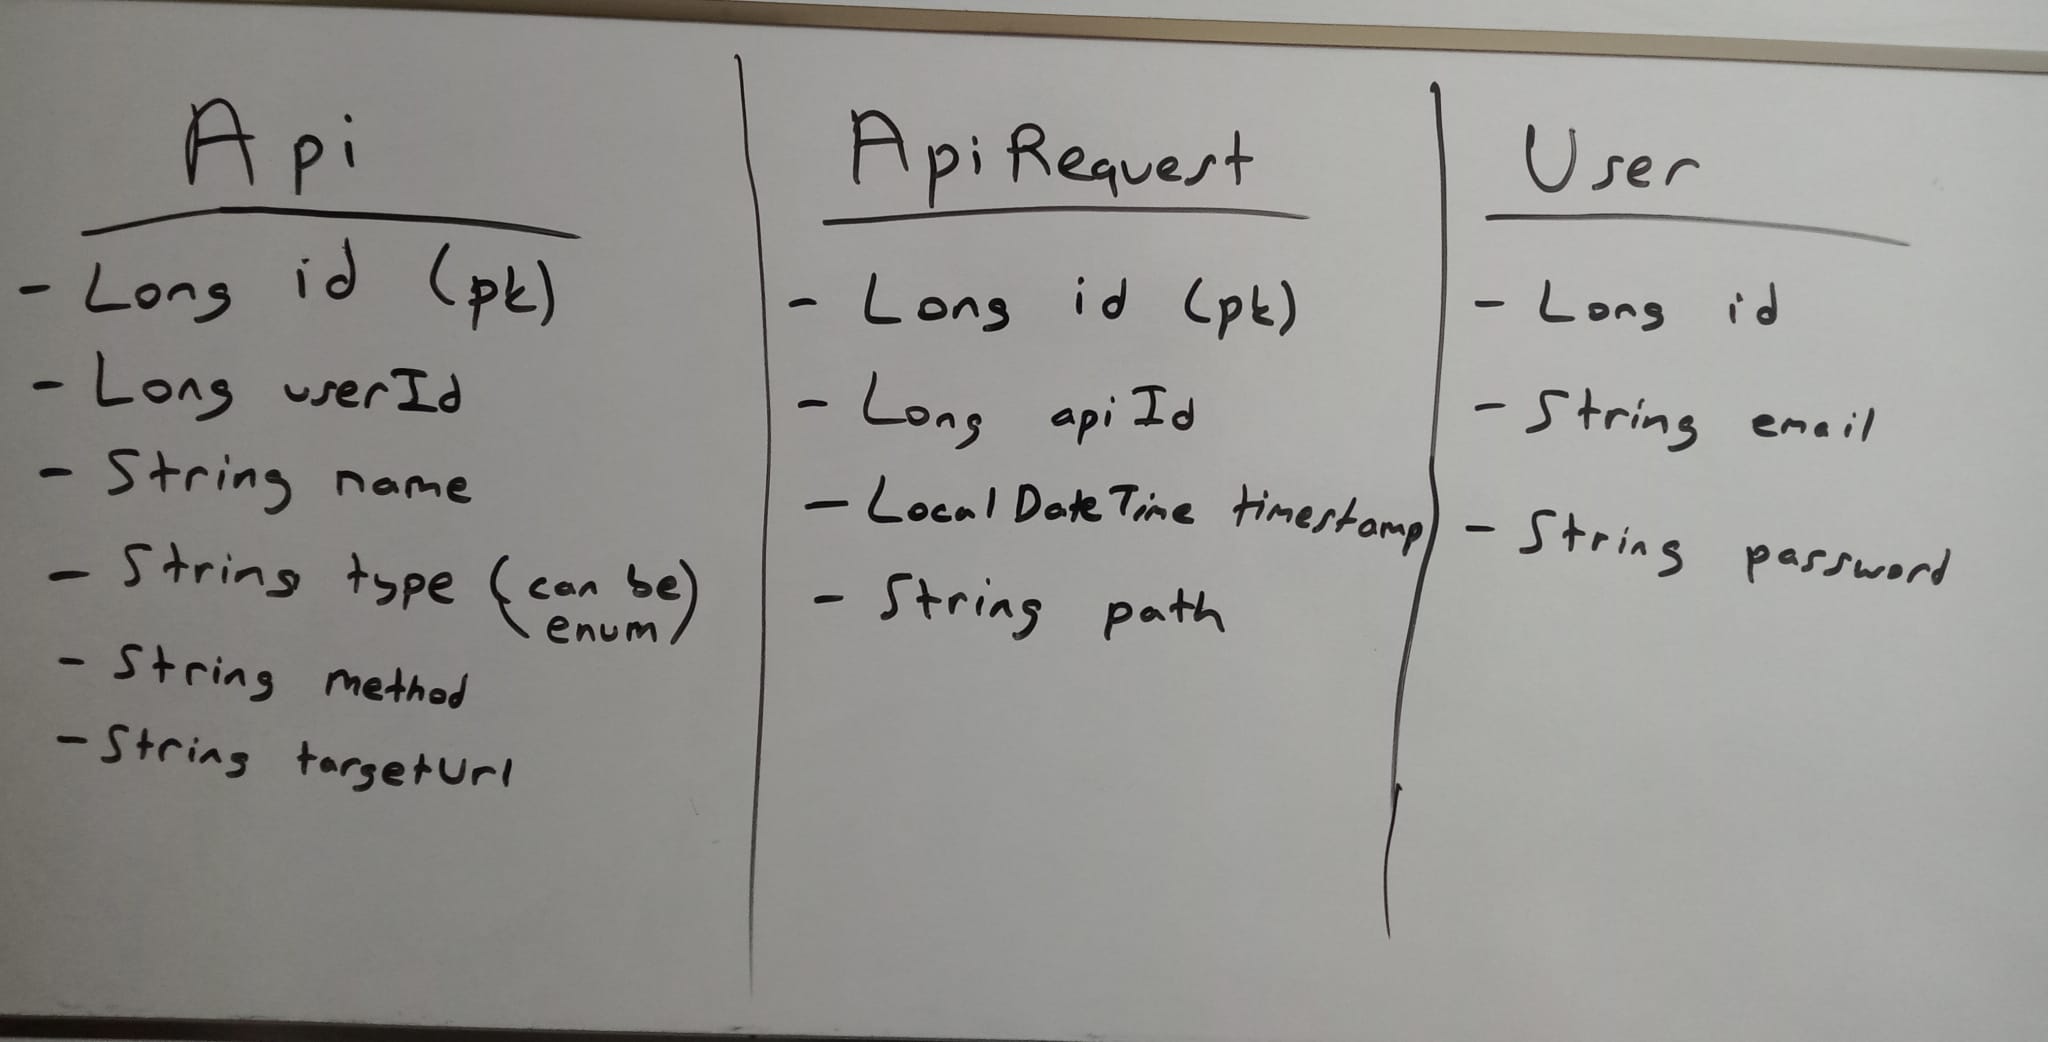 Api
- Long id (pk)
- Long userId
- String name
- String type (can be
enum)
- String method
- String targetUrl
ApiRequest
- Long id (pk)
- Long apiId
- LocalDateTime timestamp
- String path
User
- Long id
- String email
- String password